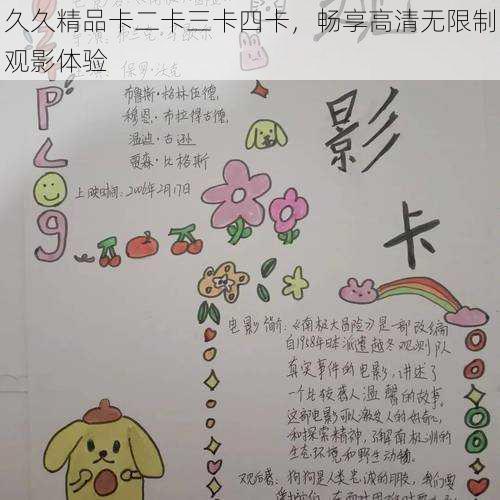 久久精品卡二卡三卡四卡，畅享高清无限制
观影体验
保罗·沃克
布鲁斯·格林伍德，
穆恩·布拉得古德，
温迪·古逊
贾森·比格斯
上映时间：2006年2月17日
PLog
影
卡
电影简介：《南极大冒险》是一部改编
自1958年日本派遣越冬观测队
真实事件的电影，讲述了
一个比较感人温馨的故事。
这部电影可以激发人的好奇心
和探索精神，了解南极洲的
生态环境和野生动物。
观后感：狗狗是人类忠诚的朋友，我们要